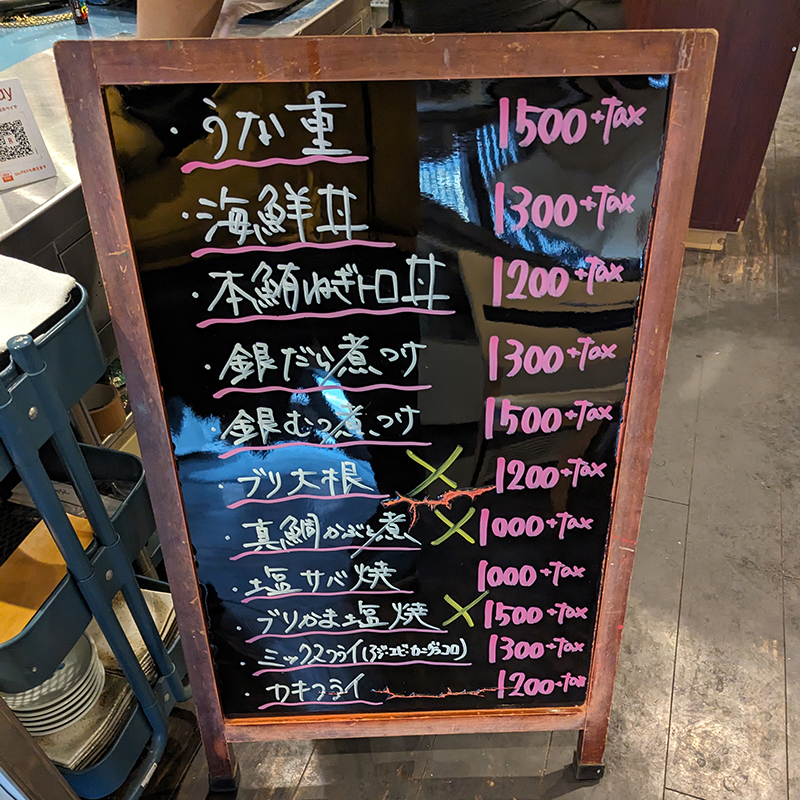 ・うな重 1500+tax
・海鮮丼 1300+tax
・本鮪ねぎトロ丼 1200+tax
・銀だら煮つけ 1300+tax
・銀むつ煮つけ 1500+tax
・ブリ大根 × 1200+tax
・真鯛かぶと煮 × 1000+tax
・塩サバ焼 1000+tax
・ブリかま塩焼 × 1500+tax
・ミックスフライ(アジ・エビ・カニクリコロ) 1300+tax
・カキフライ 1200+tax